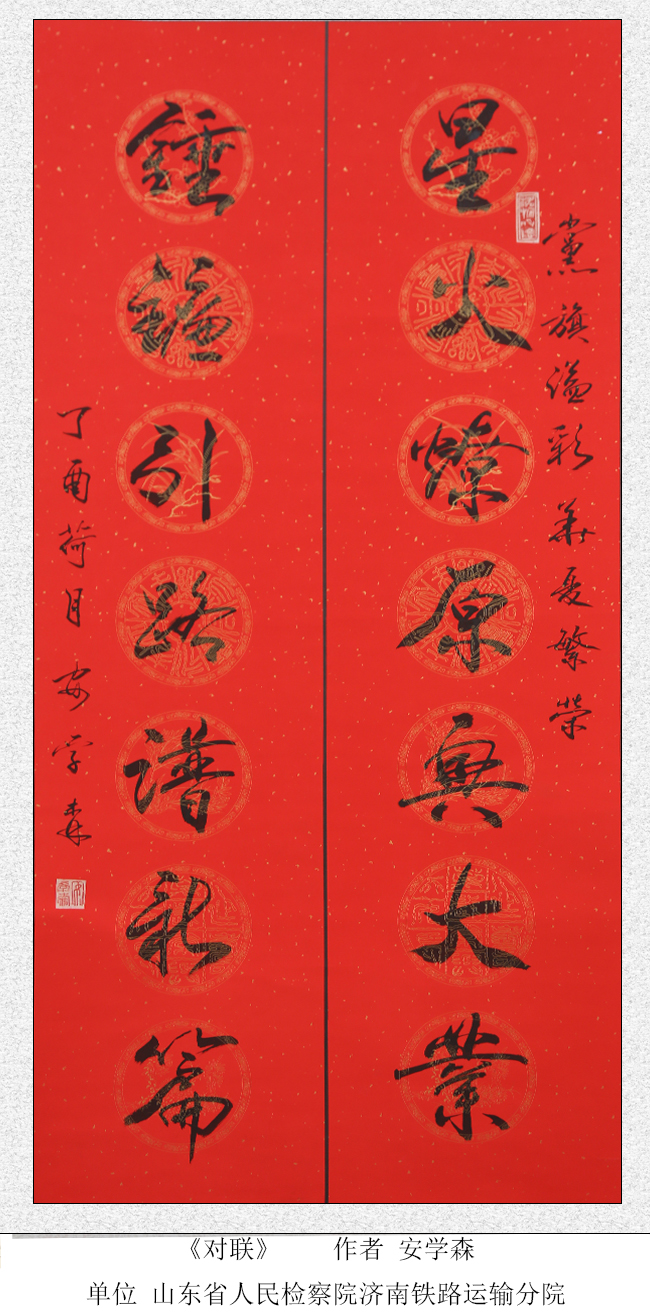 黨旗溢彩華夏繁榮
星火燎原興大業
錘鐮引路譜新篇
丁酉荷月安学森
《对联》 作者 安学森
单位 山东省人民检察院济南铁路运输分院